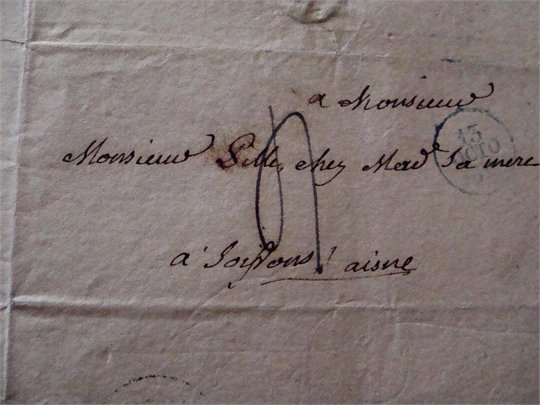 a Monsieur
Monsieur Lille, chez Mad sa mere
a Soissons, aisne
13